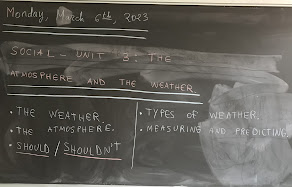 Monday, March 6th, 2023
SOCIAL - UNIT 3: THE
ATMOSPHERE AND THE WEATHER
• THE WEATHER.
• THE ATMOSPHERE.
• SHOULD / SHOULDN'T
• TYPES OF WEATHER.
• MEASURING AND PREDICTING